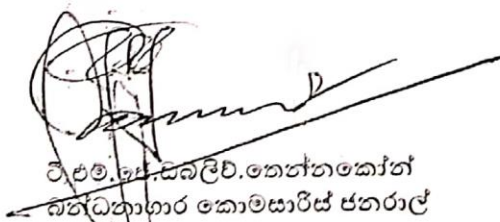 ටී.එම්.ජේ.ඩබ්ලිව්.තෙන්නකෝන්
බන්ධනාගාර කොමසාරිස් ජනරාල්